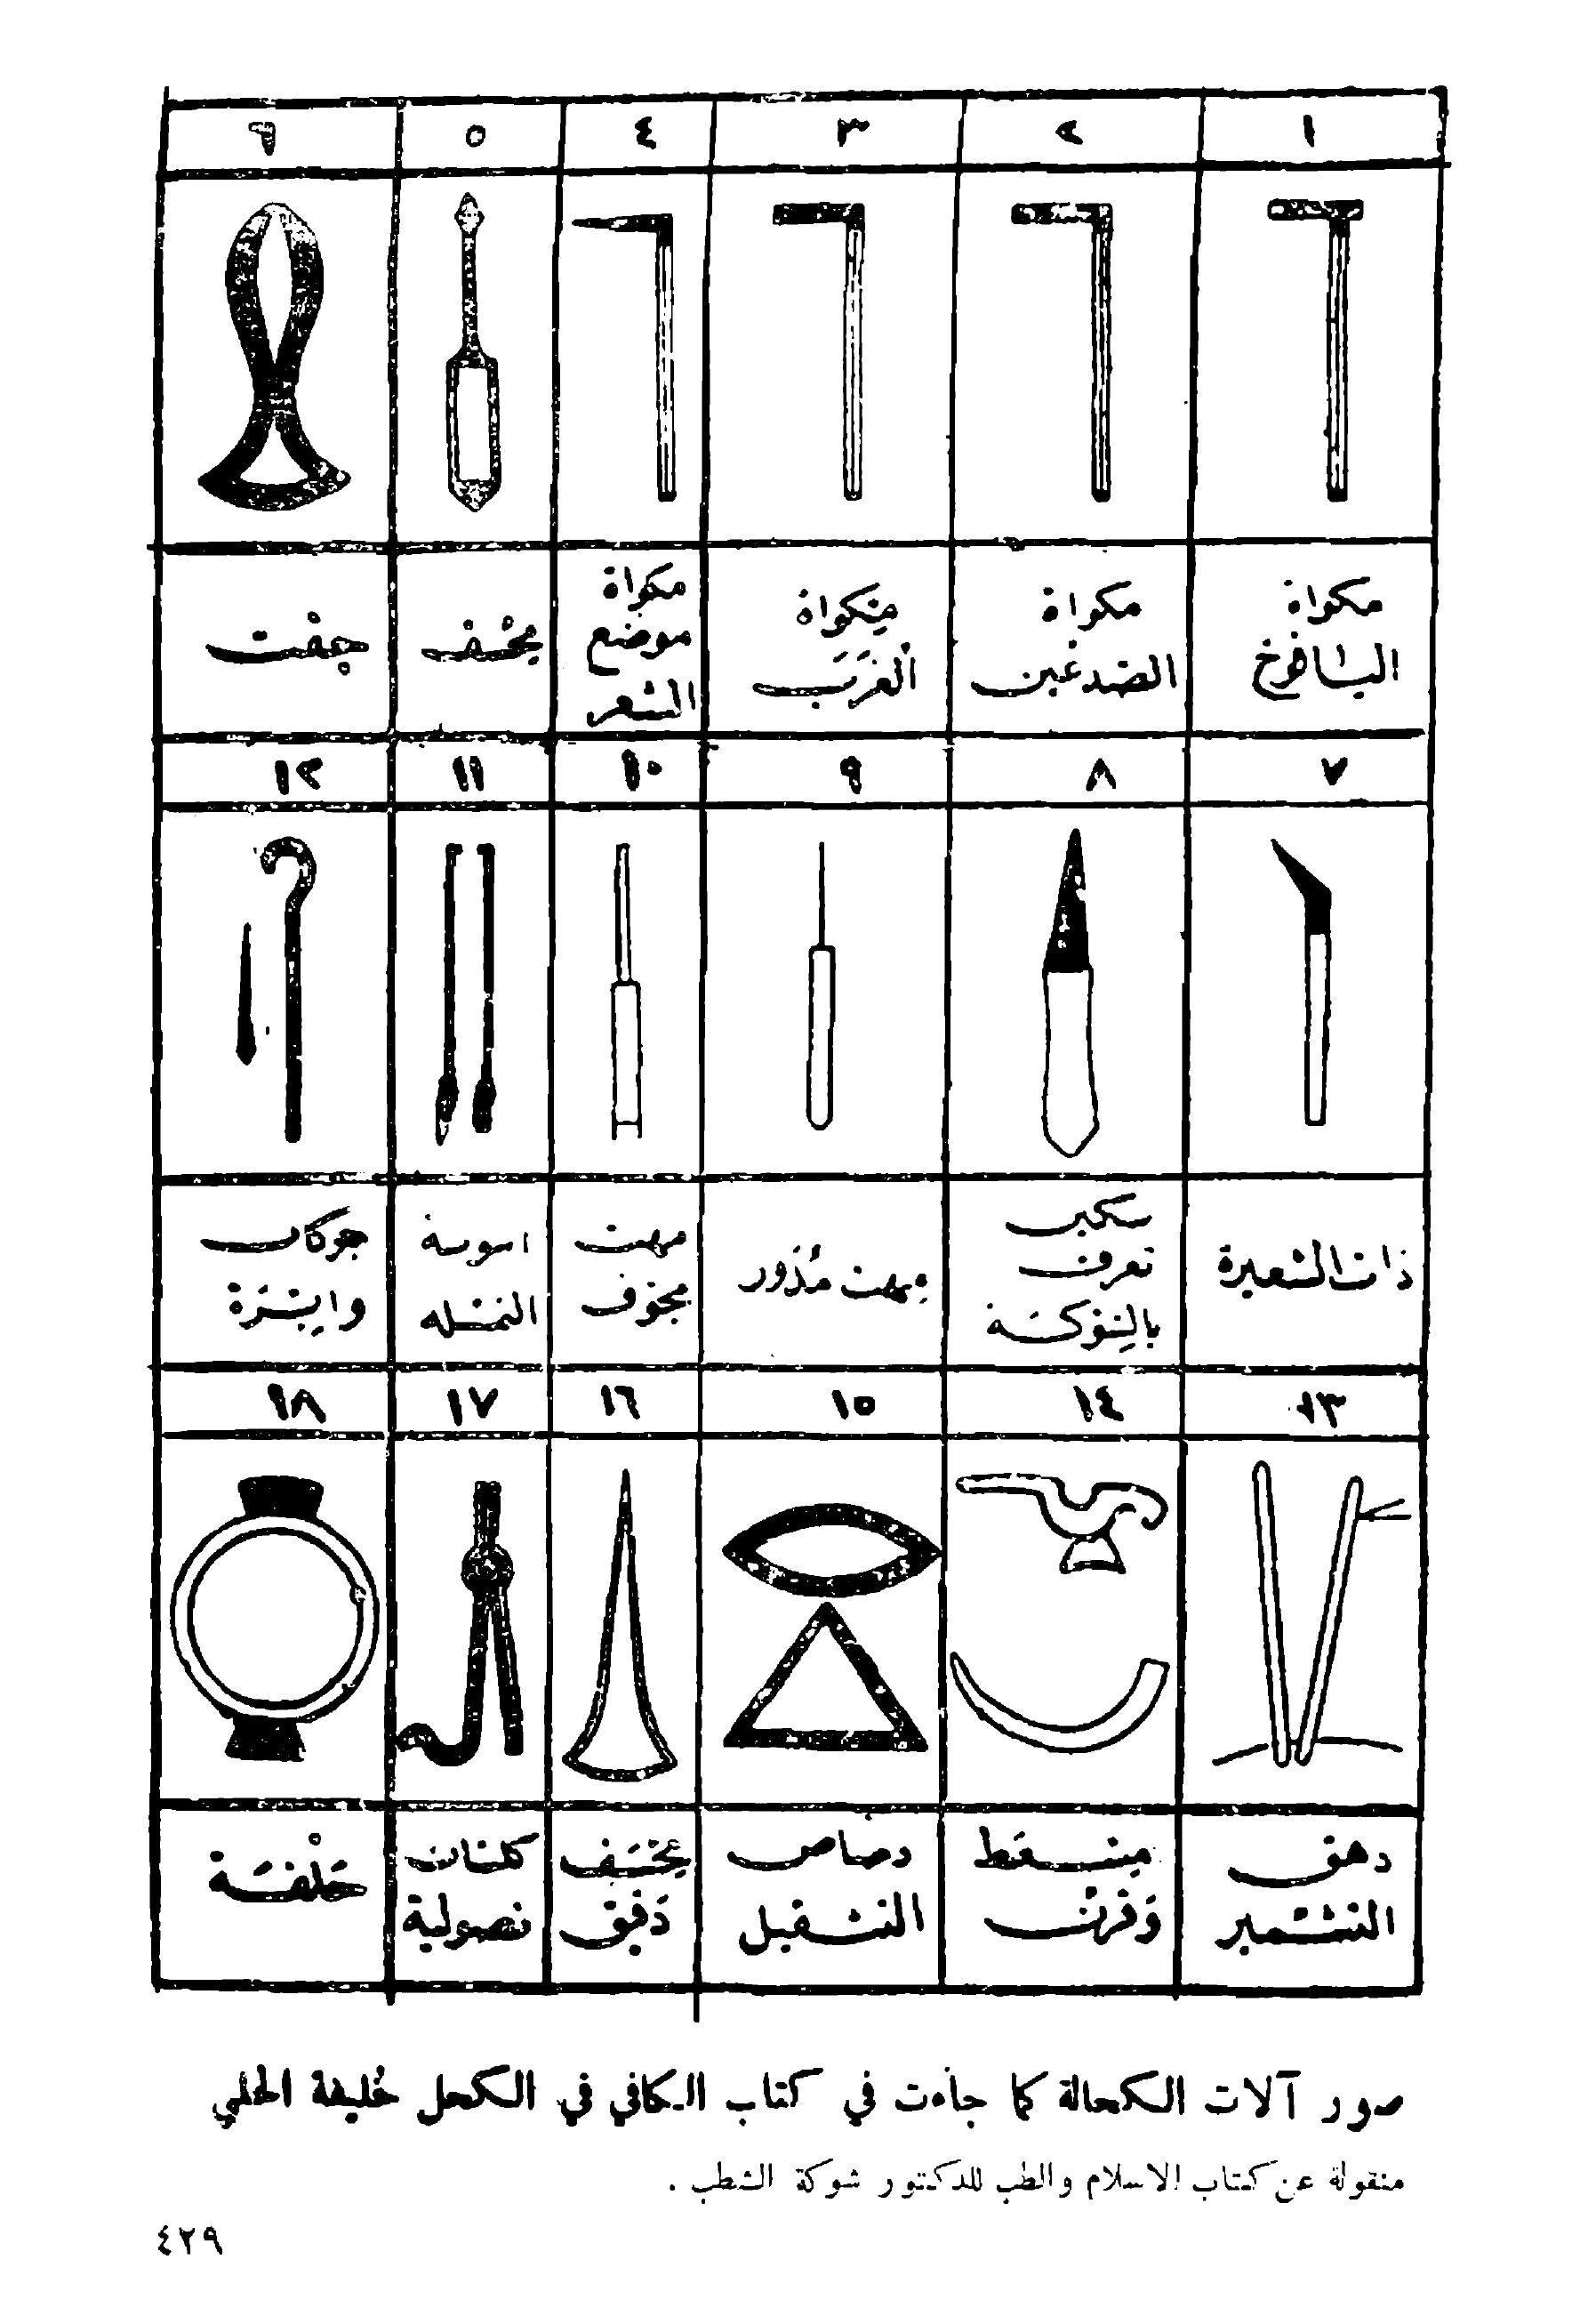 ١ ٢ ٣ ٤ ٥ ٦
مكواة اليافوخ
مكواة الصدغين
مِكواة الغَرَب
مكواة موضع الشعر
مِجْف
جِفْت
٧ ٨ ٩ ١٠ ١١ ١٢
ذات الشعيرة
سكين تعرف
مهت مُدَور
مهت مجوف
النمله
وإبَرة
١٣ ١٤ ١٥ ١٦ ١٧ ١٨
دهق التشمير
وَقرن
رصاص التثقيل
دَقيق
نصولية
حَلْقَة
صور آلات الكحالة كما جاءت في كتاب الكافي في الكحل خليفة الحلبي
منقولة عن كتاب الاسلام والطب للدكتور شوكة الشطب .
٤٢٩